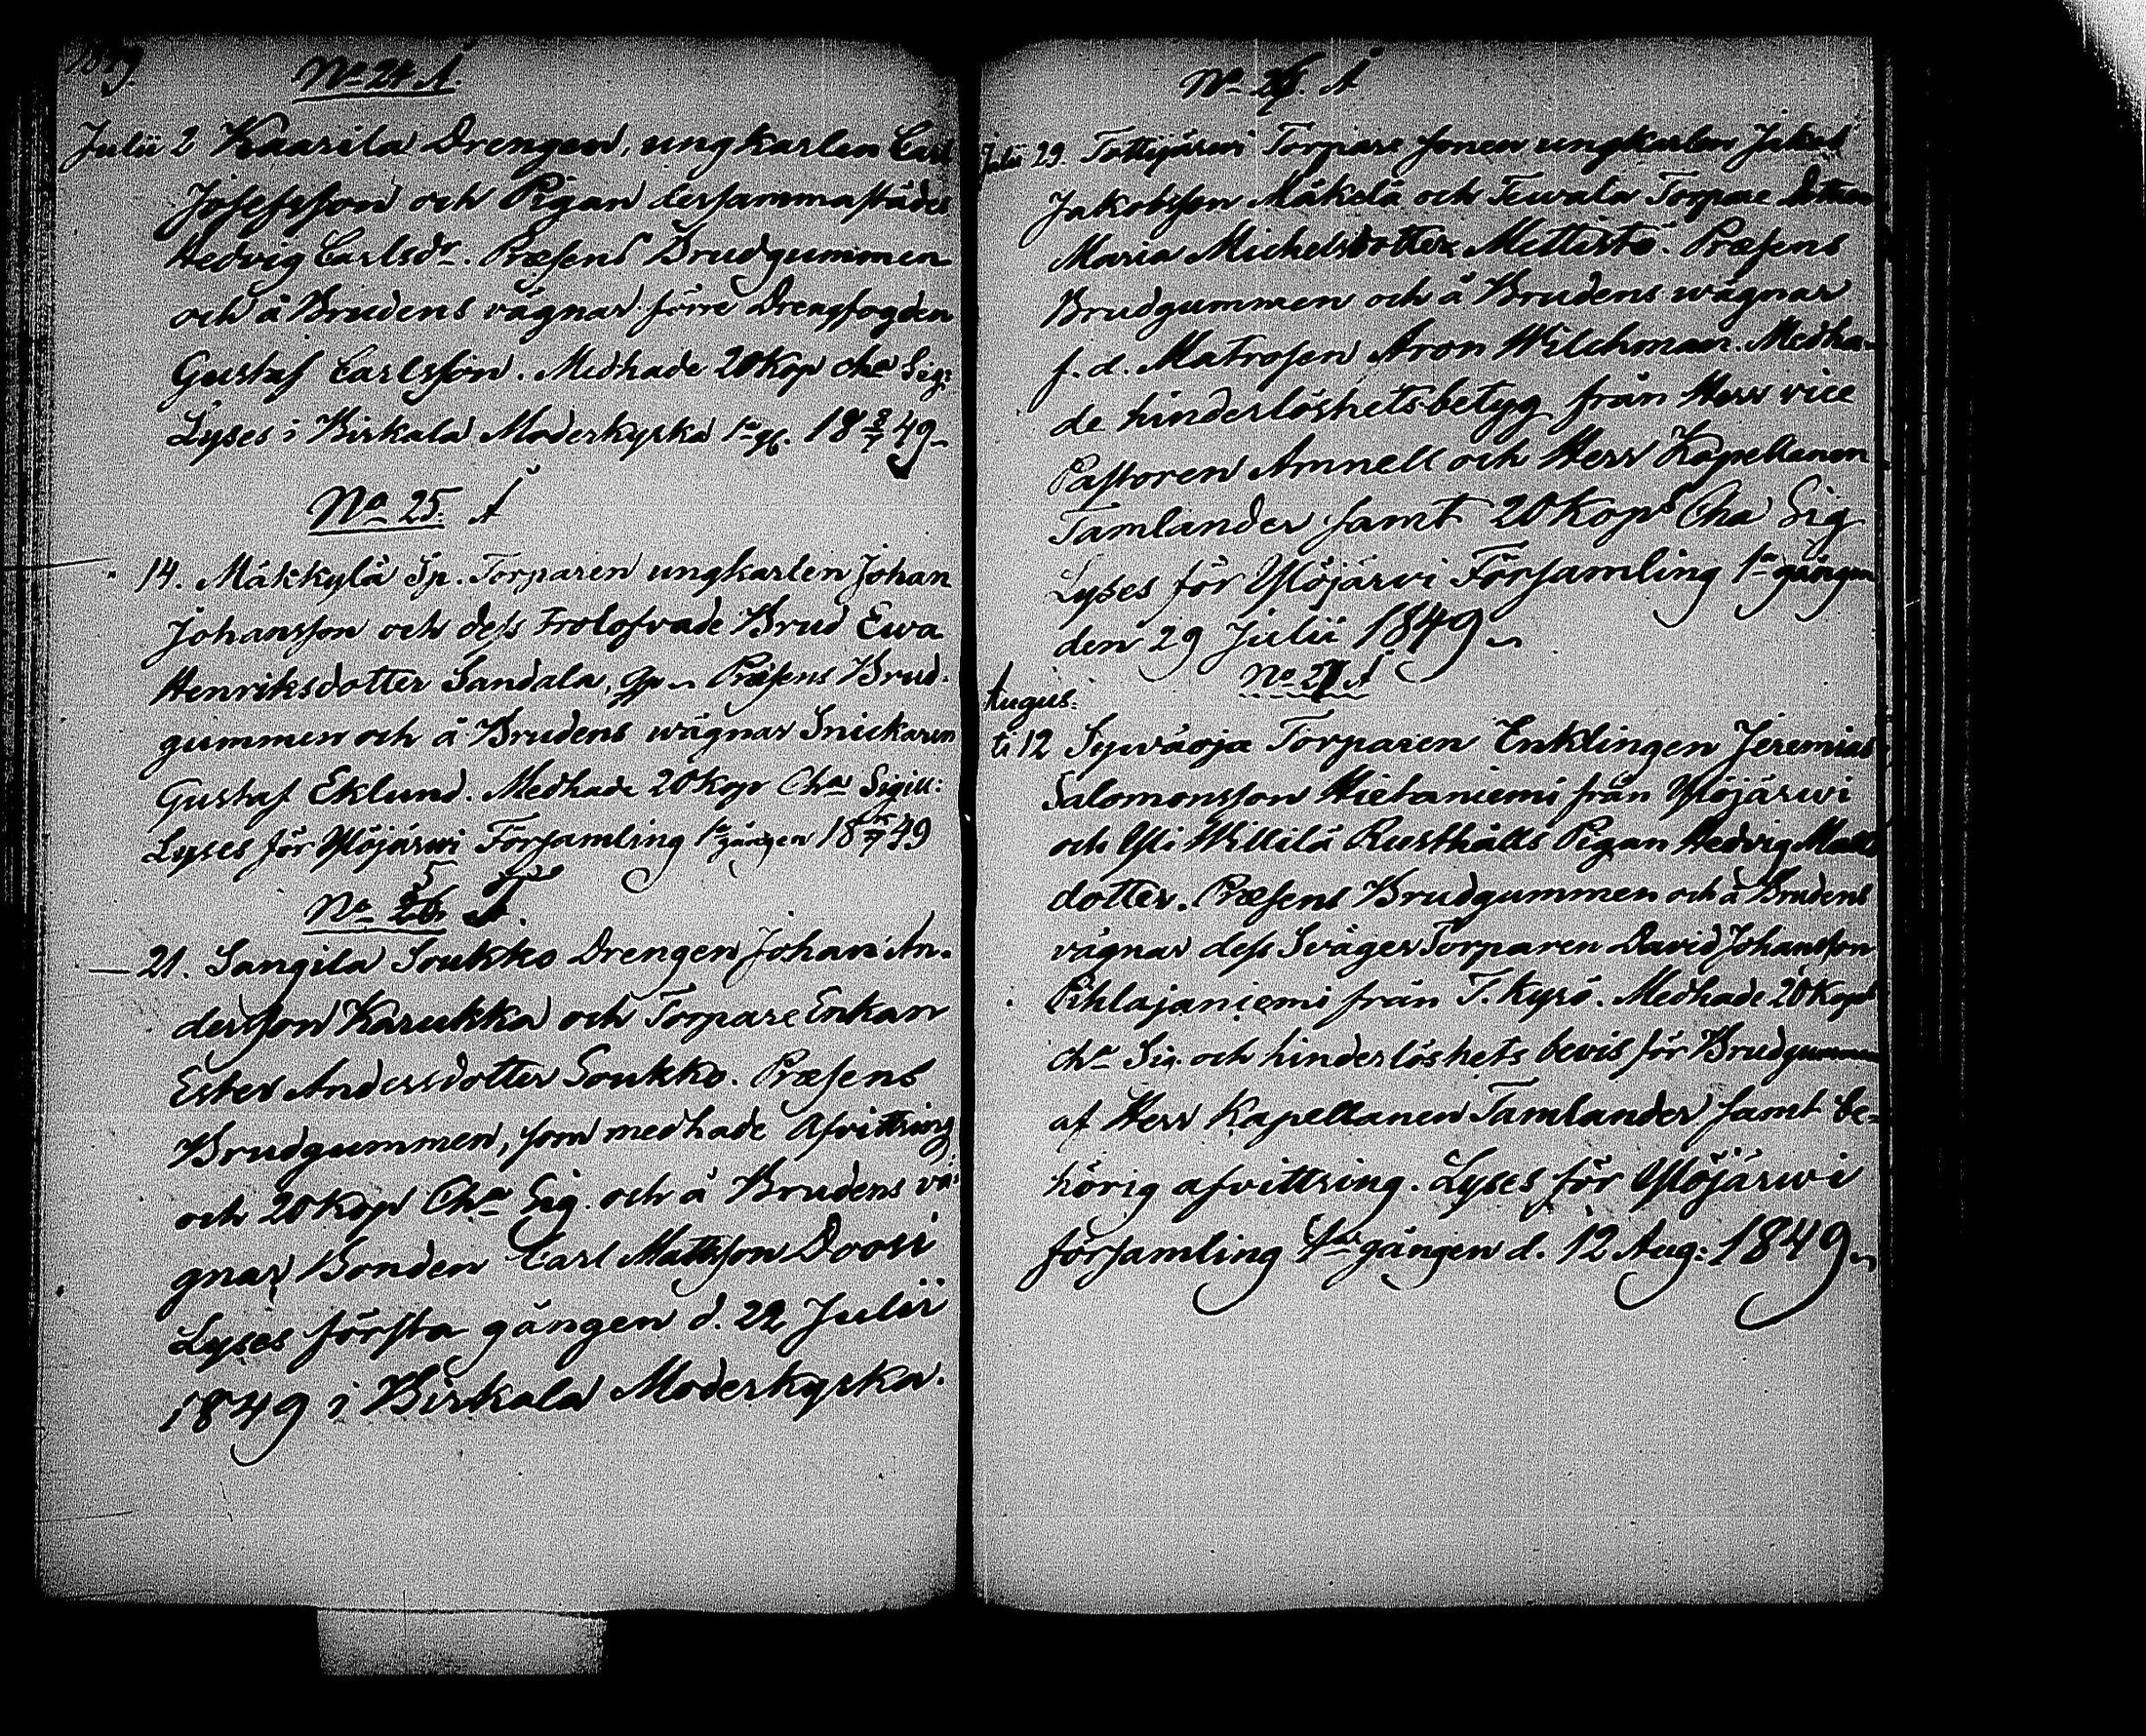 1849.
No 24 A.
Julii 2 Kaarila Drengen, ungkarlen Carl
Josefsson och Pigan dersammastädes
Hedvig Carlsdr. Præsens Brudgummen
och å Brudens vägnar förre Drengfogden
Gustaf Carlsson. Medhade 20 Kop cha Sig:
Lyses i Birkala Moderkyrka 1a gg. 18 8/7 49
No 25. A
" 14. Mäkkylä Sp. Torparen ungkarlen Johan
Johansson och dess trolofvade Brud Ewa
Henriksdotter Sandala, Præsens Brud-
gummen och å Brudens wägnar Snickaren
Gustaf Eklund. Medhade 20 Kop Cha Sigill:
Lyses för Ylöjärwi Församling 1a gången 18 15/7 49
No 26
21. Sangila Soukko Drengen Johan An-
dersson Karukka och Torpare Enkan
Ester Andersdotter Soukko. Præsens
Brudgummen, som medhade Afvittring
och 20 Kop Cha Sig. och å Brudens vä-
gnar Bonden Carl Mattsson Doori
Lyses första gången d. 22 Julii
1849 i Birkala Moderkyrka.
No 26. A
Julii 29. Tottijärwi Torpare sonen ungkarlen Jakob
Jakobsson Mäkelä och Torpare dottren
Maria Michelsdotter Mettistö. Præsens
Brudgummen och å Brudens wägnar
f. d. Matrosen Aron Wilchman. Medha-
de hinderlöshetsbetyg från Herr vice
Pastoren Amnell och Herr Kapellanen
Tamlander samt 20 Kops Cha Sig
Lyses för Ylöjärwi Församling 1a gången
den 29 Julii 1849
No 27 A
Augus:
ti 12 Sywäoja Torparen Enklingen Jeremias
Salomonsson Hietaniemi från Ylöjärwi
och Yli Willilä Rusthålls Pigan Hedvig Matts
dotter. Præsens Brudgummen och å Brudens
vägnar dess Sväger Torparen David Johansson
Pihlajaniemi från T. Kyrö. Medhade 20 Kops
cha Sig. och hinderlöshets bevis för Brudgummen
af Herr Kapellanen Tamlander samt be-
hörig afvittring. Lyses för Ylöjärwi
församling 1sta gången d. 12 Aug: 1849